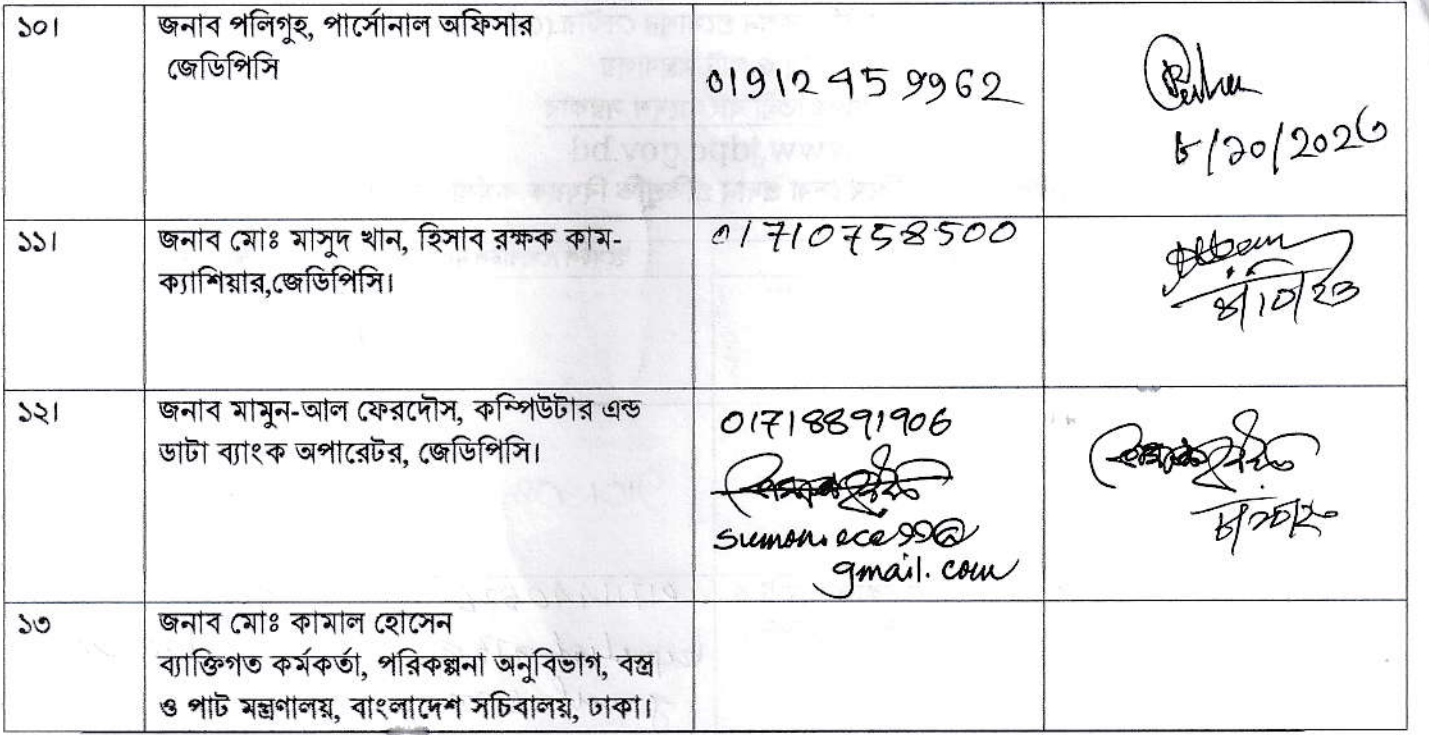 ১০।
জনাব পলিগুহ, পার্সোনাল অফিসার
জেডিপিসি
01912459962
৮/১০/২০২৩
১১।
জনাব মোঃ মাসুদ খান, হিসাব রক্ষক কাম-
ক্যাশিয়ার,জেডিপিসি।
01710758500
১২।
জনাব মামুন-আল ফেরদৌস, কম্পিউটার এন্ড
ডাটা ব্যাংক অপারেটর, জেডিপিসি।
01718891906
sumon.ece99@
gmail.com
১৩
জনাব মোঃ কামাল হোসেন
ব্যাক্তিগত কর্মকর্তা, পরিকল্পনা অনুবিভাগ, বস্ত্র
ও পাট মন্ত্রণালয়, বাংলাদেশ সচিবালয়, ঢাকা।